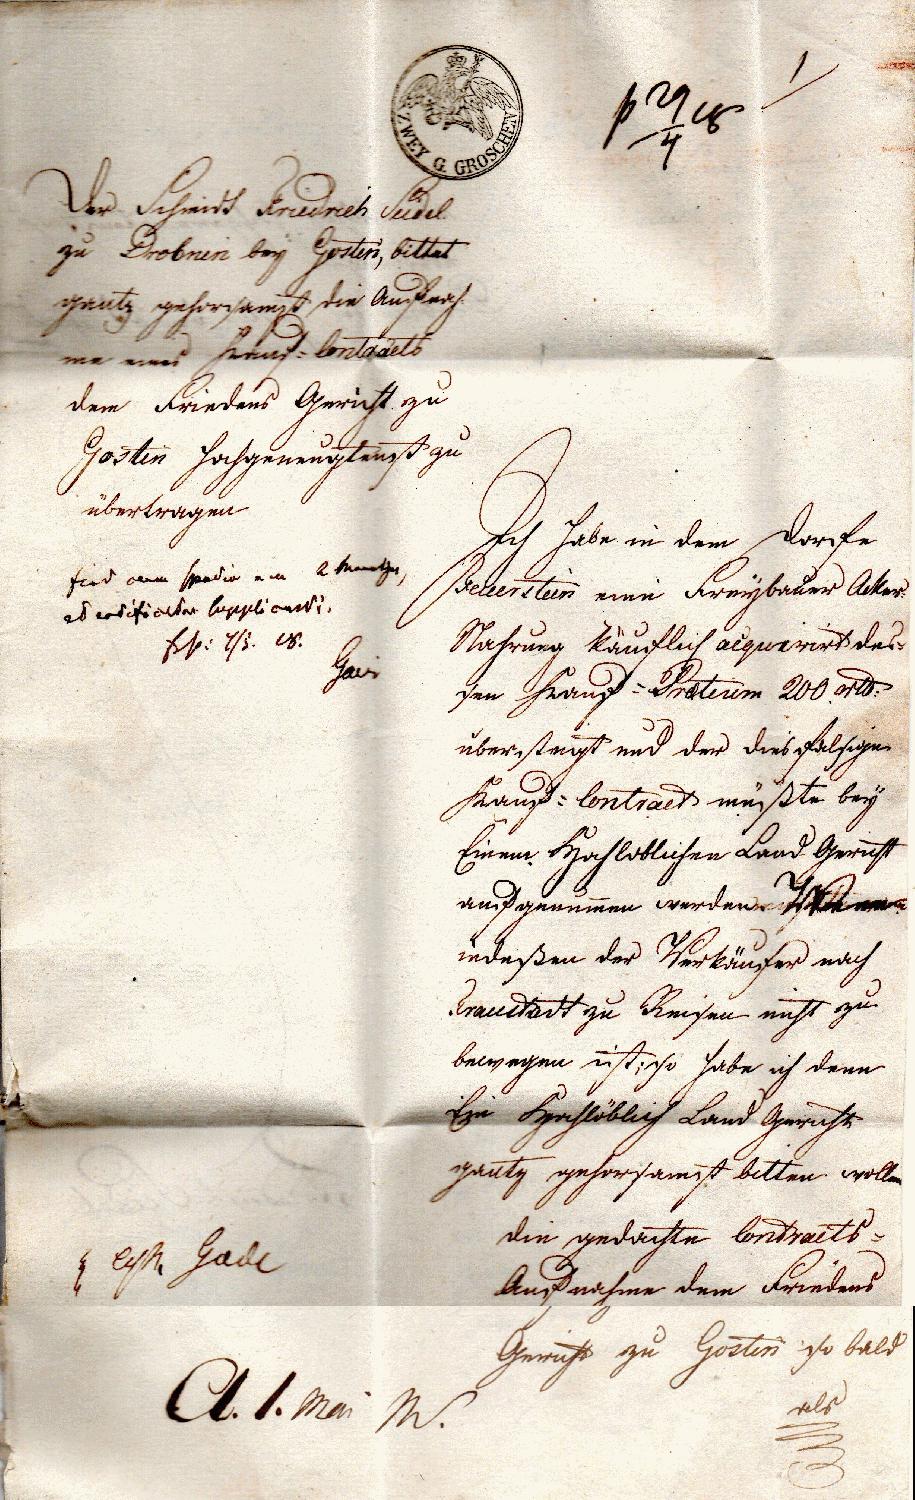 ZWEY G. GROSCHEN
p 29/4 18
1
Der Schmidt Friedrich Seidel
zu Drobnin bey Gostin, bittet
gantz gehorsamst die Aufnah-
me eines Kauf-Contracts
dem Friedens Gericht zu
Gostin hochgeneugtenst zu
übertragen
2
18.
Ich habe in dem Dorfe
Feuerstein eine Freybauer Acker
Nahrung käuflich acquirirt des-
sen Kauf-Pretium 200 rtl:
übersteigt und der diesfalsige
Kauf-Contract müßte bey
Einem Hochloblichen Land Gericht
aufgenummen werden
indeßen der Verkäufer nach
Fraustadt zu Reisen nicht zu
bewegen ist; so habe ich denn
Ein Hochlöblich Land Gericht
gantz gehorsamst bitten wollen
die gedachte Contracts-
Aufnahme dem Friedens
Gericht zu Gostin so bald
als
Gade
A. 1. Mai